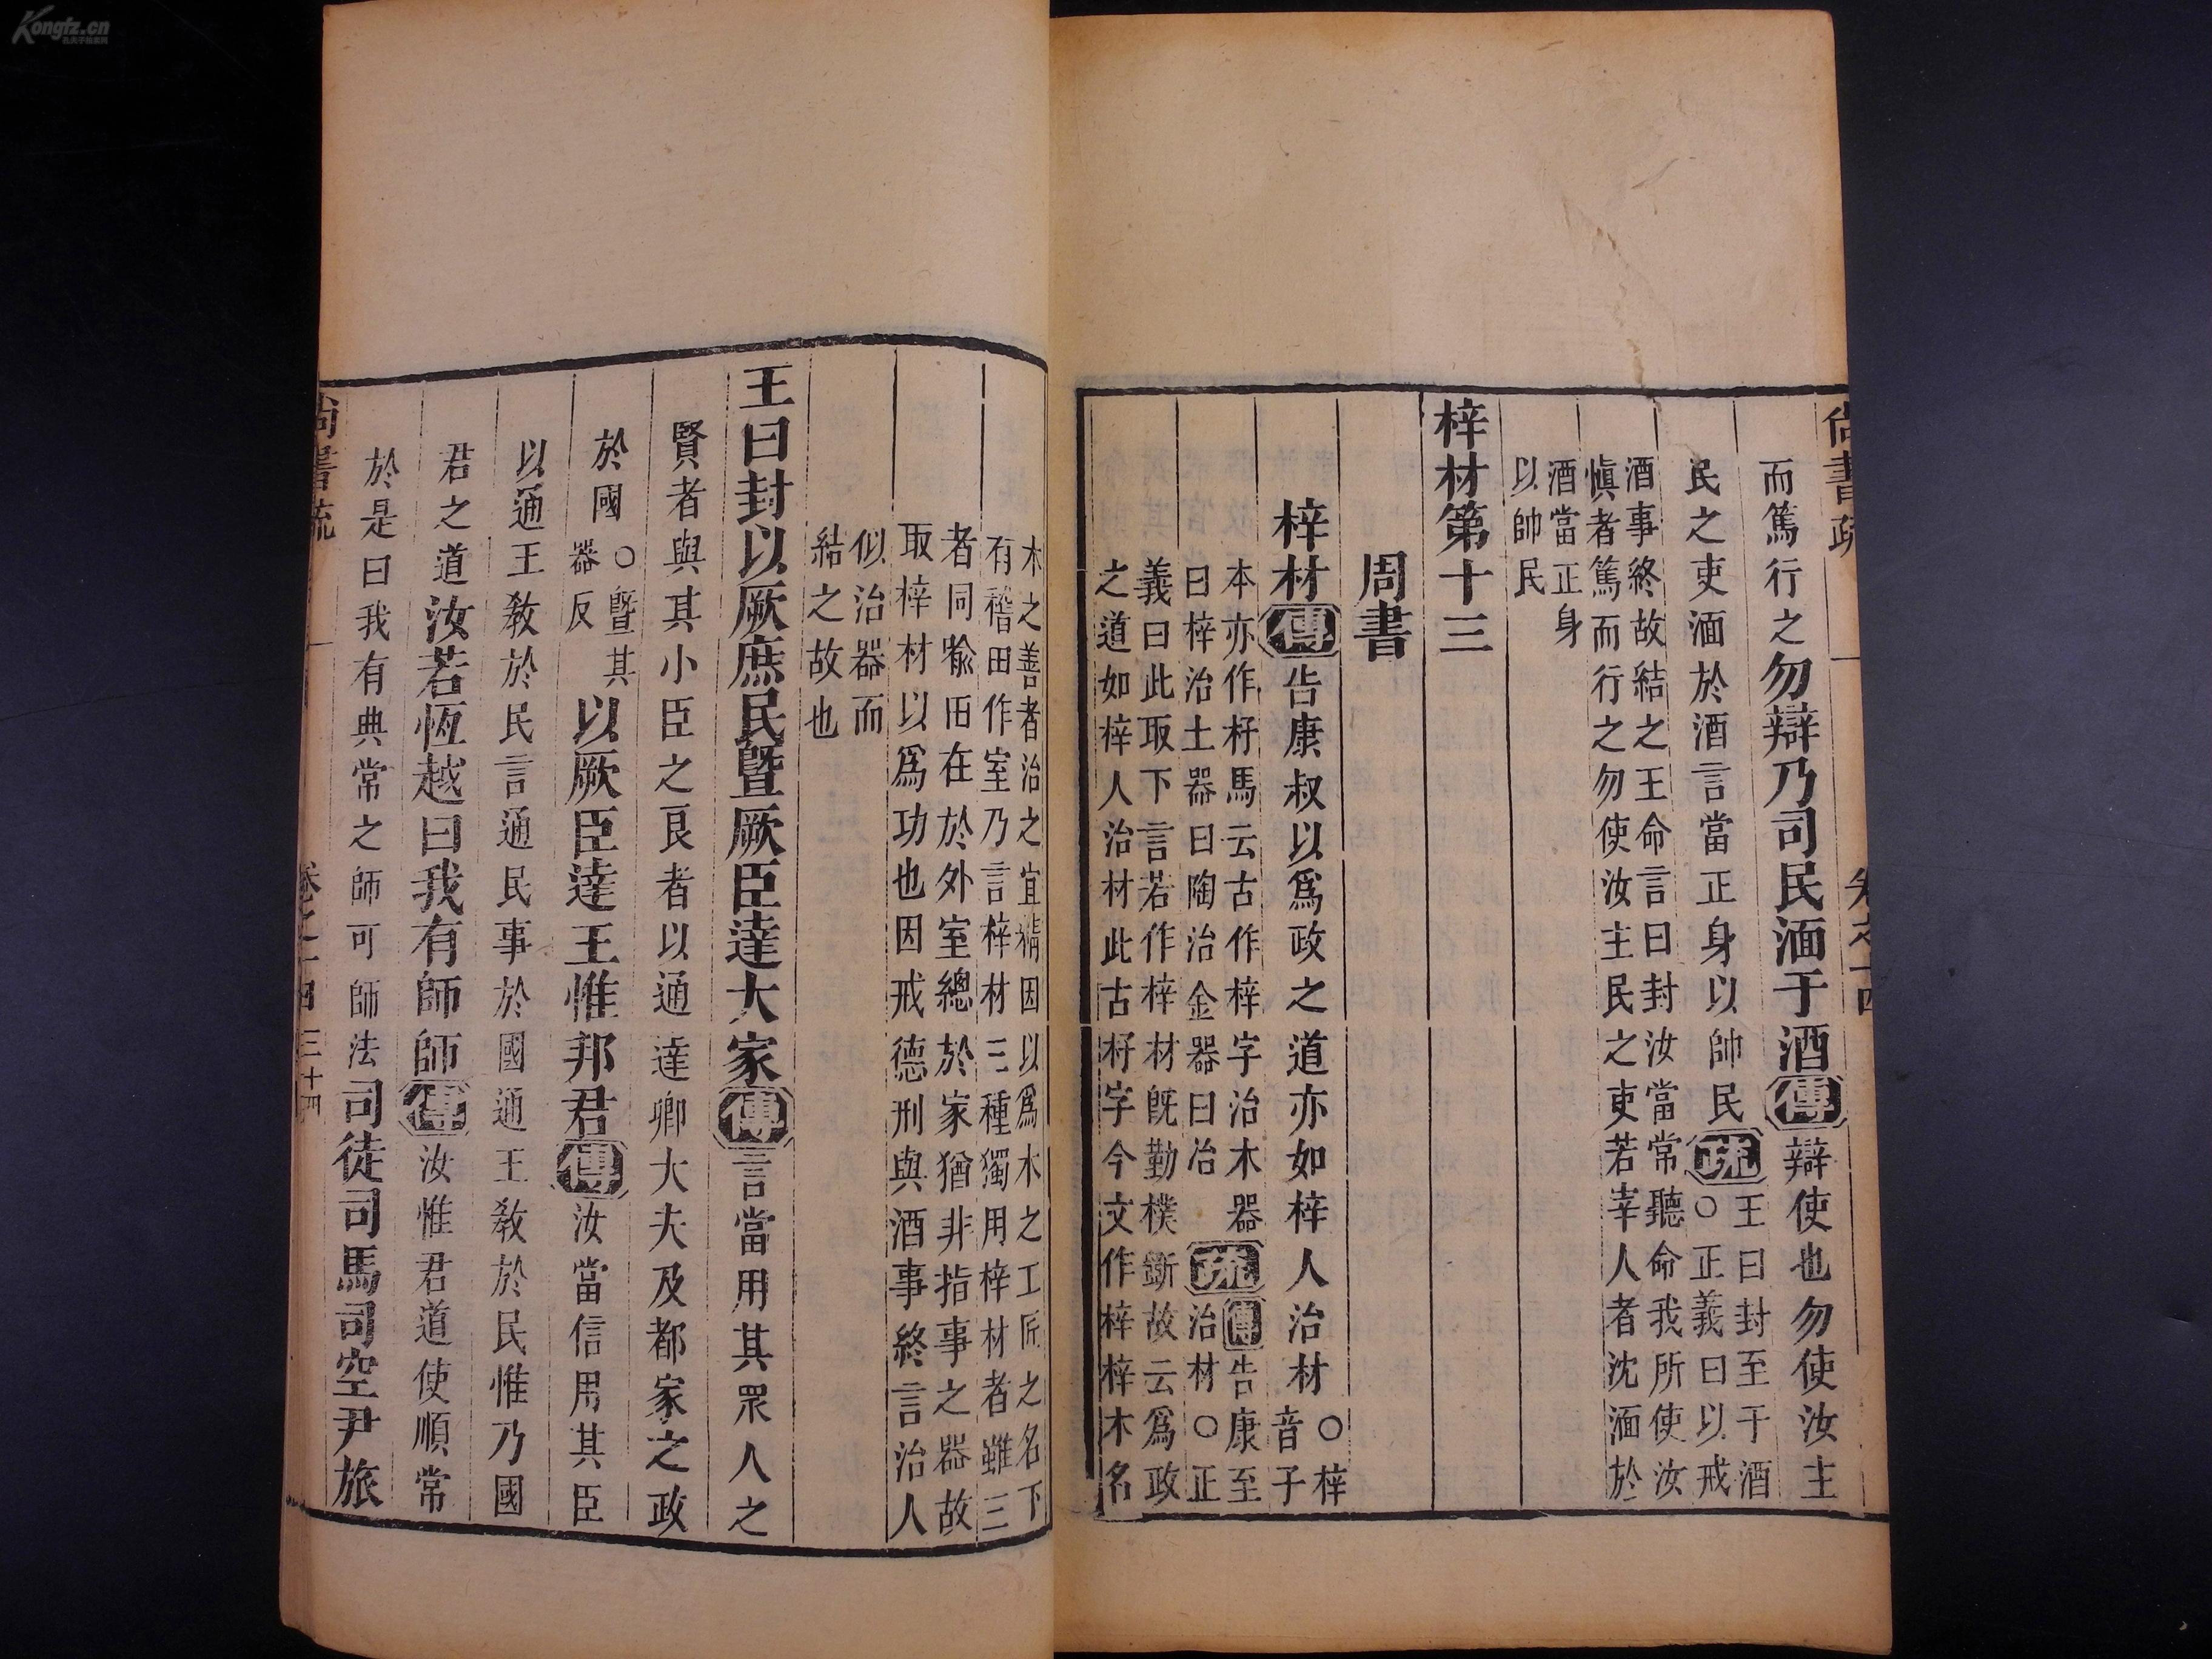 Kongfz.cn
孔夫子旧书网
尚書疏
卷之十四
而篤行之勿辯乃司民湎于酒傳辯使也勿使汝主
民之吏湎於酒言當正身以帥民疏
王曰封至于酒
○正義曰以戒
酒事終故結之王命言曰封汝當常聽命我所使汝
愼者篤而行之勿使汝主民之吏若宰人者沈湎於
酒當正身
以帥民
梓材第十三
周書
梓材傳告康叔以爲政之道亦如梓人治材
○梓
音子
本亦作杍馬云古作梓字治木器
曰梓治土器曰陶治金器曰冶
疏
傳告康至
治材○正
義曰此取下言若作梓材旣勤樸斲故云爲政
之道如梓人治材此古杍字今文作梓梓木名
木之善者治之宜精因以爲木之工匠之名下
有稽田作室乃言梓材三種獨用梓材者雖三
者同喩田在於外室總於家猶非指事之器故
取梓材以爲功也因戒德刑與酒事終言治人
似治器而
結之故也
王曰封以厥庶民曁厥臣達大家傳言當用其眾人之
賢者與其小臣之良者以通達卿大夫及都家之政
於國
○曁其
器反
以厥臣達王惟邦君傳汝當信用其臣
以通王敎於民言通民事於國通王敎於民惟乃國
君之道汝若恆越曰我有師師傳汝惟君道使順常
於是曰我有典常之師可師法司徒司馬司空尹旅
尚書疏
卷之十四
三十四